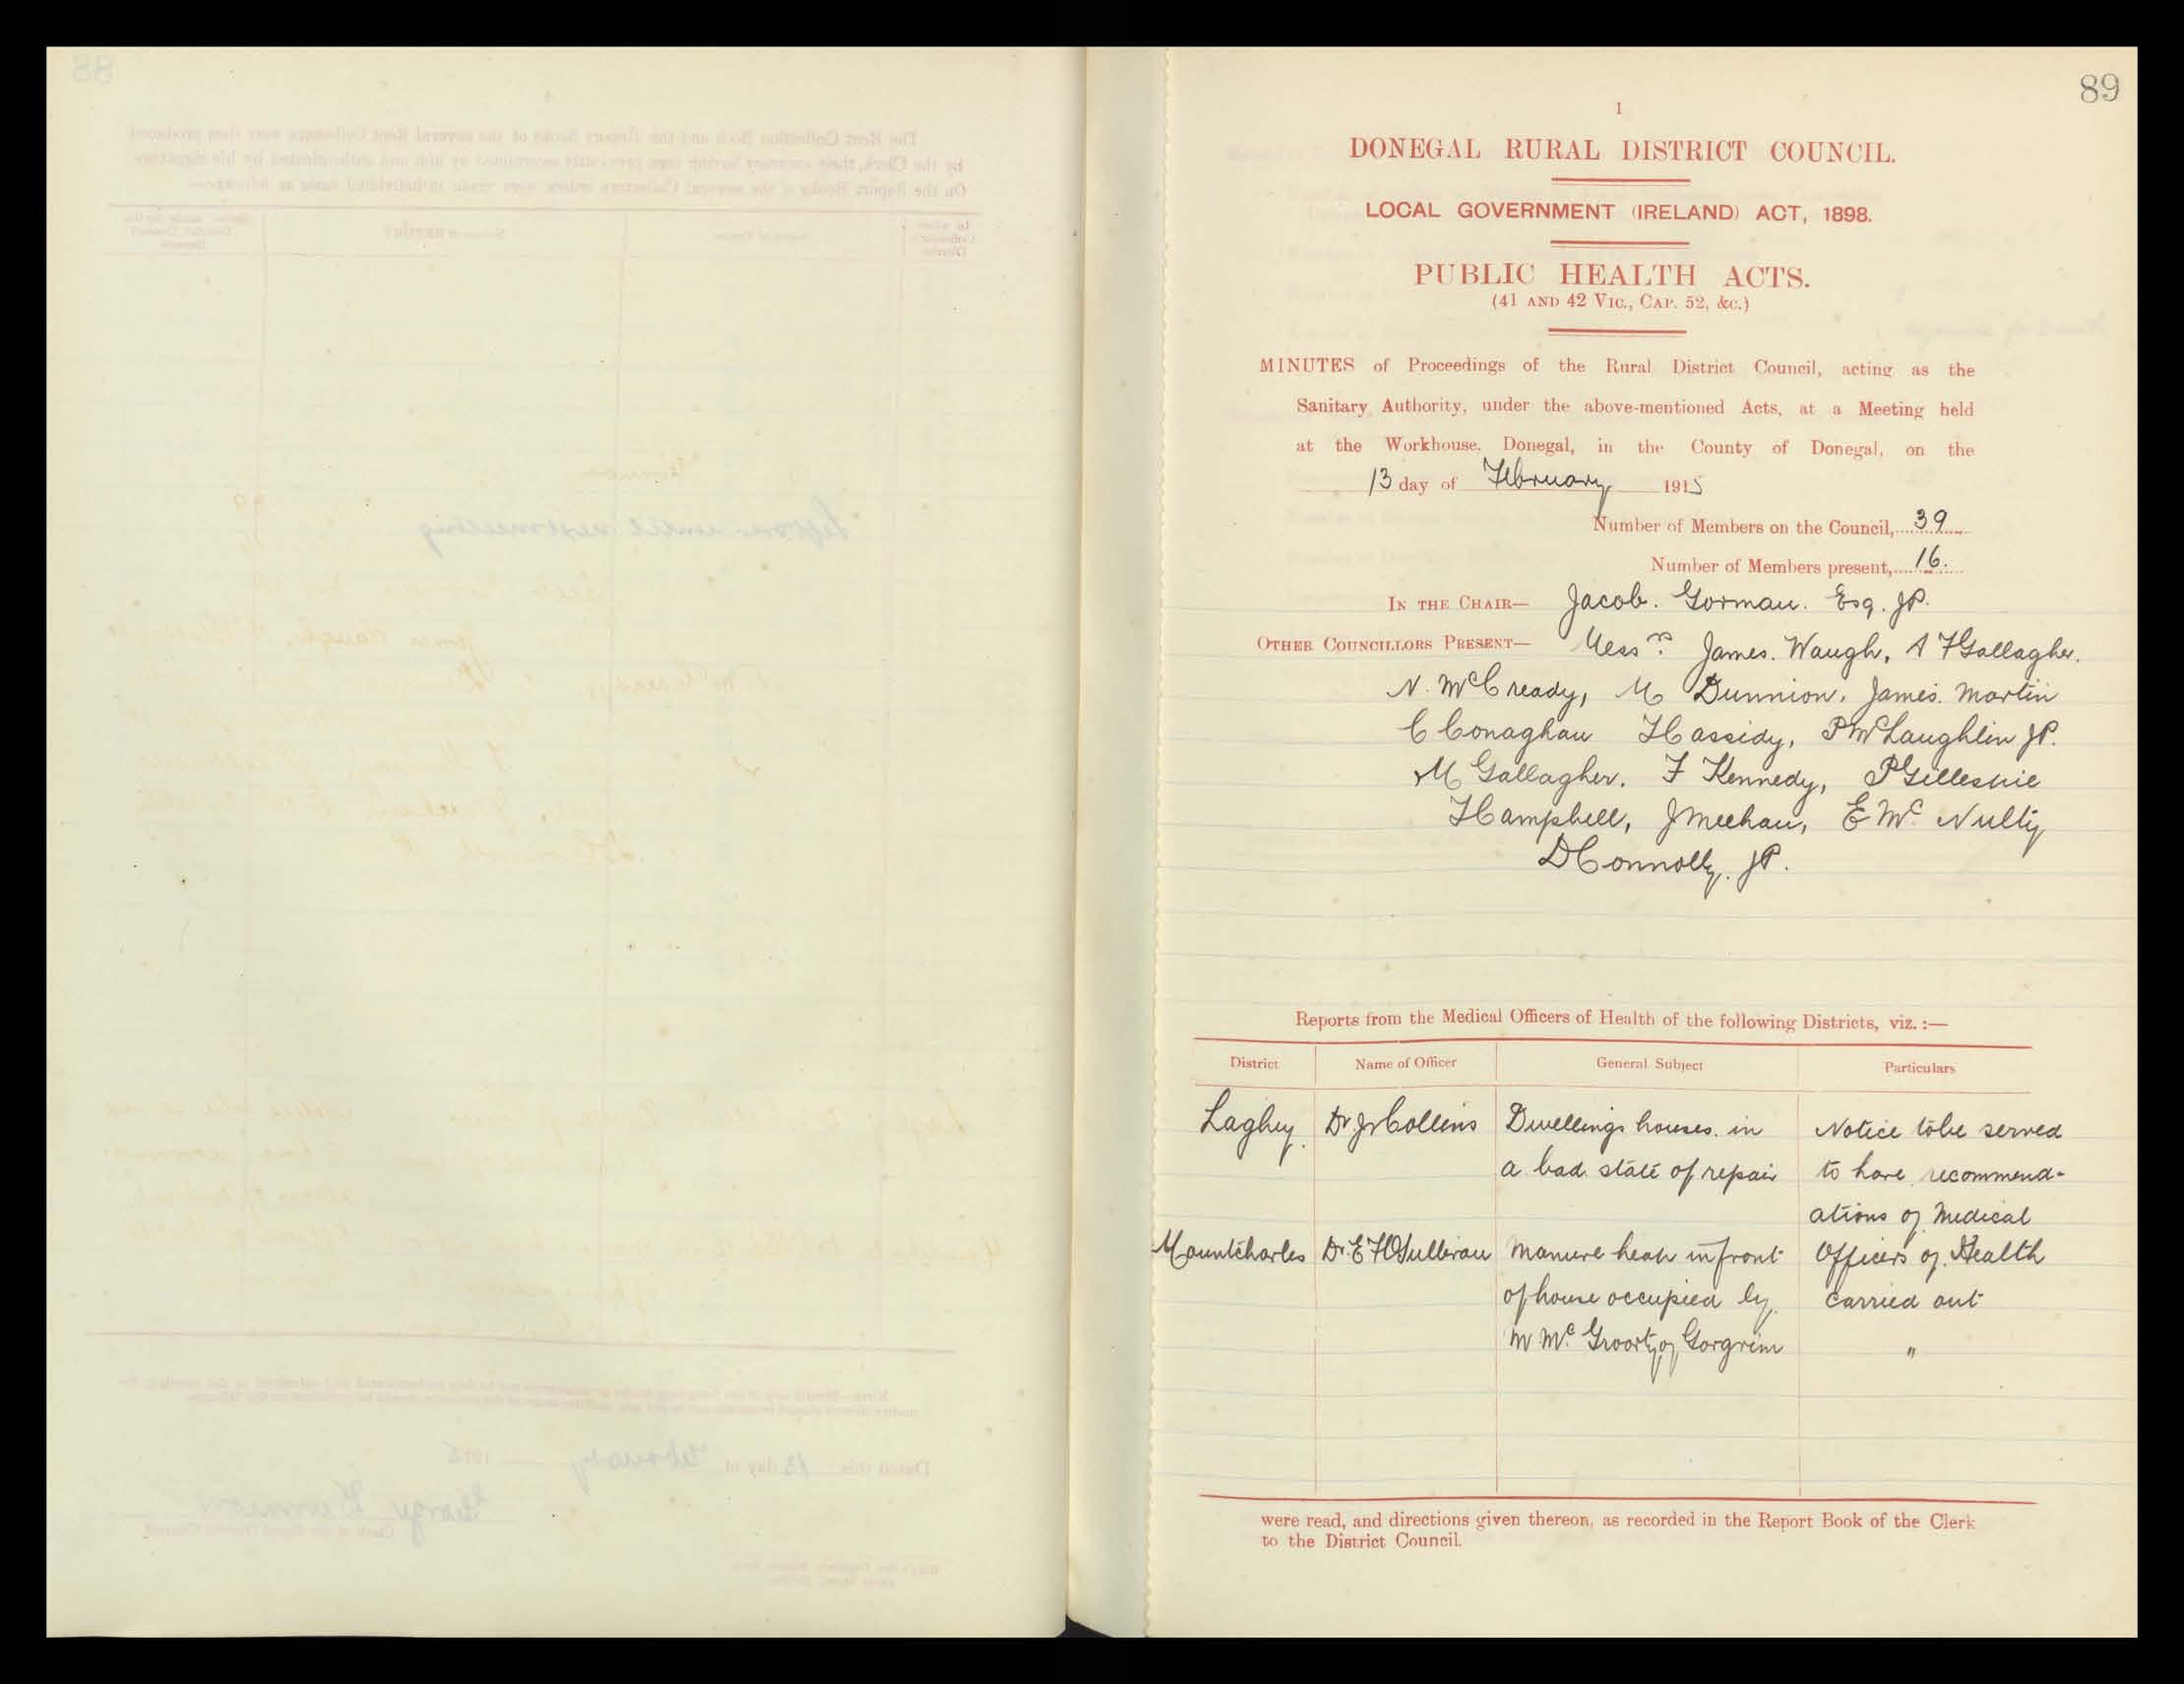 89
1
DONEGAL RURAL DISTRICT COUNCIL.
LOCAL GOVERNMENT (IRELAND) ACT, 1898.
PUBLIC HEALTH ACTS.
(41 AND 42 VIC., CAP. 52, &c.)
MINUTES of Proceedings of the Rural District Council, acting as the
Sanitary Authority, under the above-mentioned Acts, at a Meeting held
at the Workhouse, Donegal, in the County of Donegal, on the
13 day of February 1915
Number of Members on the Council, 39
Number of Members present, 16.
IN THE CHAIR— Jacob. Gorman. Esq. JP.
OTHER COUNCILLORS PRESENT— Messrs. James. Waugh, A F Gallagher.
N. McCready, M Dunnion, James. Martin
C Conaghan J Cassidy, P McLaughlin JP.
M Gallagher. F Kennedy, P Gillespie
J Campbell, J Meehan, E Mc Nulty
D Connolly. JP.
Reports from the Medical Officers of Health of the following Districts, viz. :—
District Name of Officer General Subject Particulars
Laghey. Dr. Jr Collins Dwellings houses. in Notice to be served
a bad state of repair to have recommend-
ations of Medical
Mountcharles Dr. E F O'Sullivan Manure heap in front Officers of Health
of house occupied by carried out
M Mc Groorty of Gorgrim "
were read, and directions given thereon, as recorded in the Report Book of the Clerk
to the District Council.